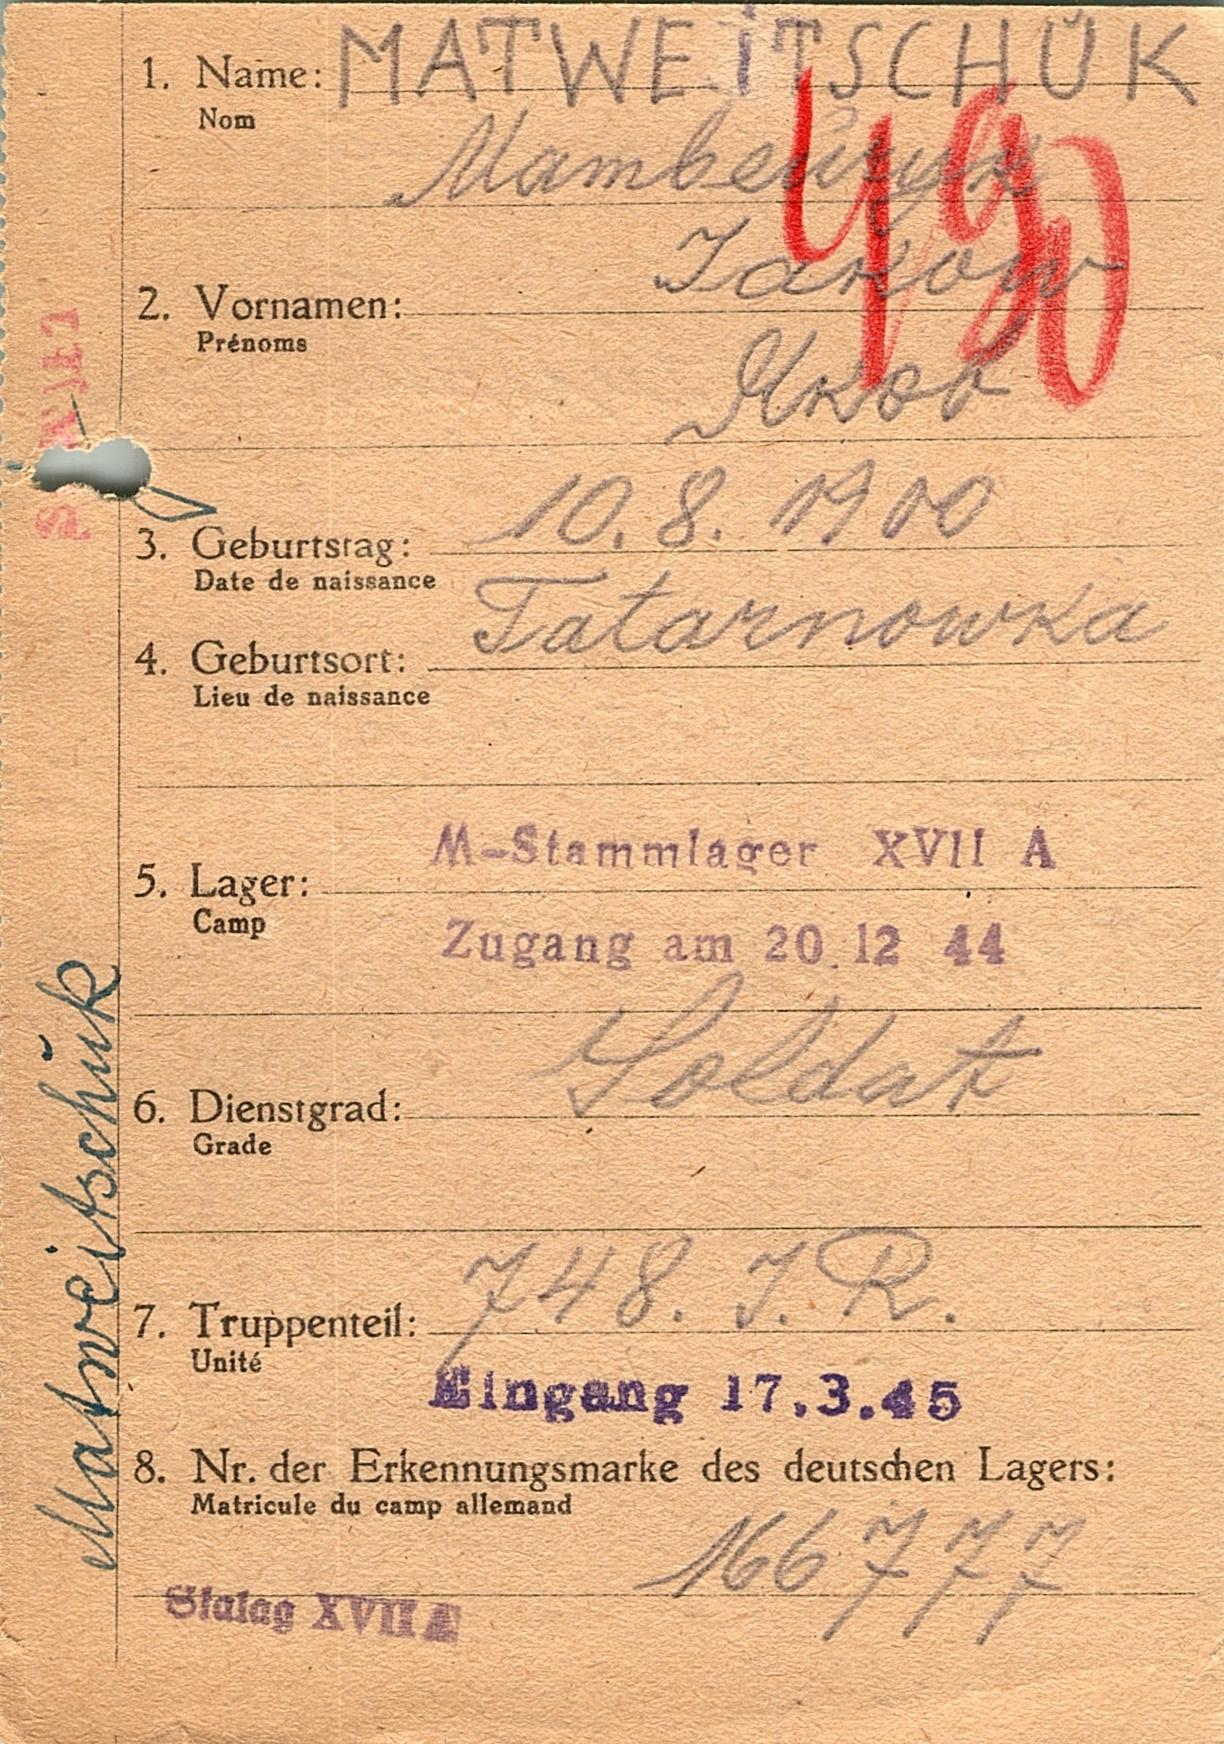 1. Name: MATWEITSCHŬK
Nom
Матвейчук
Jakow
2. Vornamen:
Prénoms
Яков
490
10.8.1900
3. Geburtstag:
Date de naissance
Tatarnowka
4. Geburtsort:
Lieu de naissance
M-Stammlager XVII A
5. Lager:
Camp
Zugang am 20.12 44
Soldat
6. Dienstgrad:
Grade
748. J.R.
7. Truppenteil:
Unité
Eingang 17.3.45
8. Nr. der Erkennungsmarke des deutschen Lagers:
Matricule du camp allemand
166777
Stalag XVII A
Matweitschŭk